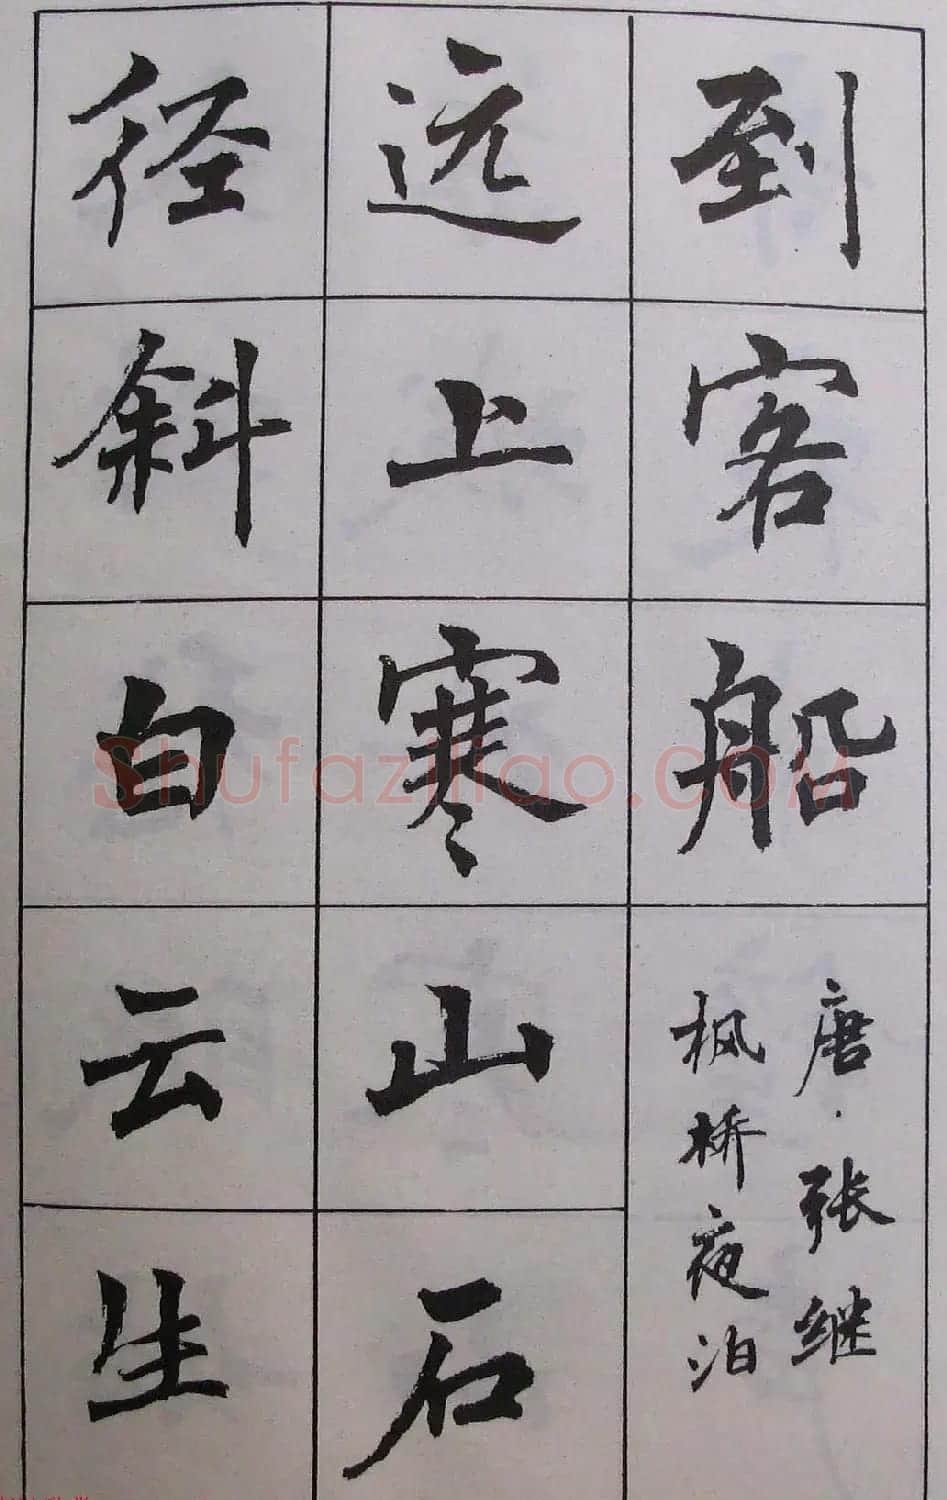 到客船
唐·张继
枫桥夜泊
远上寒山石
径斜白云生
Shufaziliao.COM